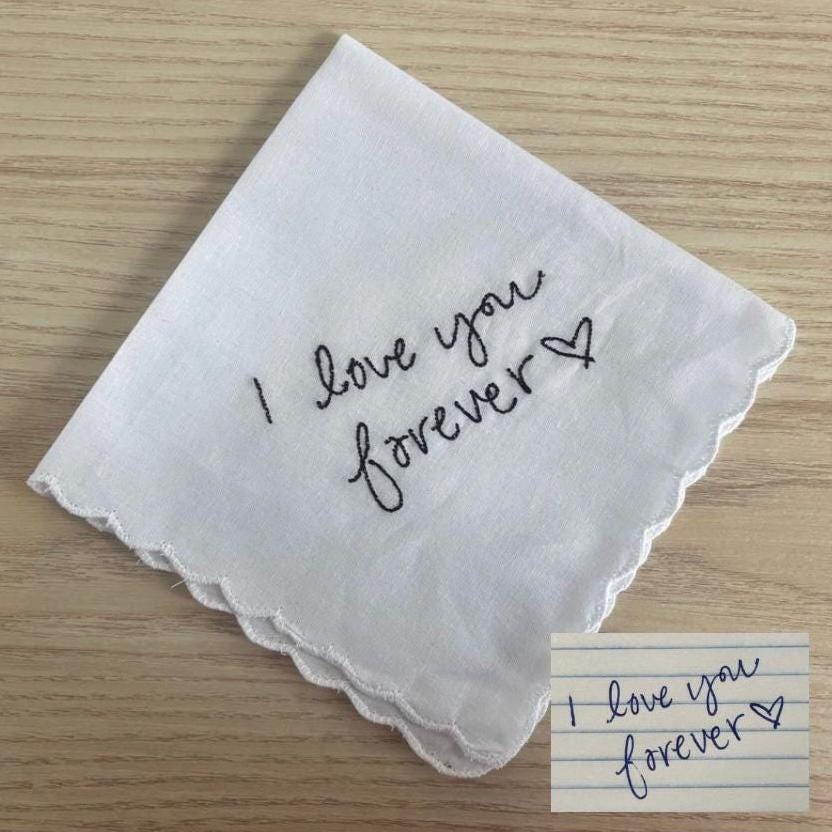 I love you
forever♡
I love you
forever♡